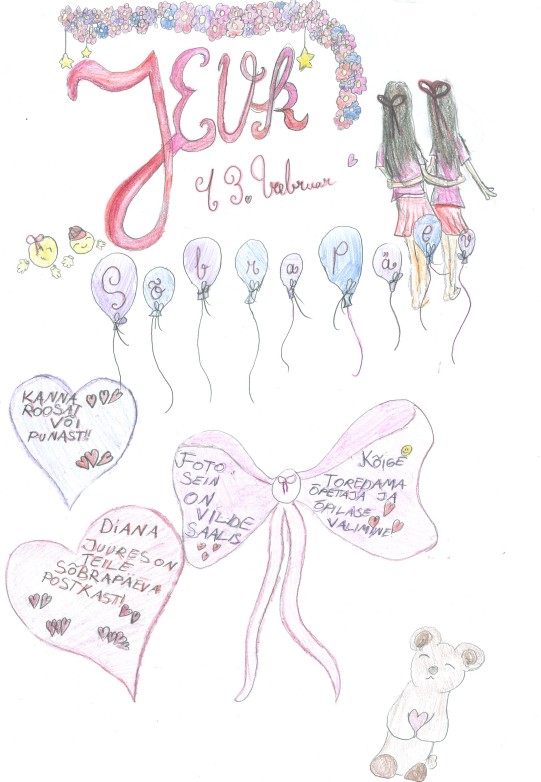 JEVK
13. Veebruar
Sõbrapäev
KANNA
ROOSAT
VÕI
PUNAST!!
FOTO
SEIN
ON
VILDE
SAALIS
KÕIGE
TOREDAMA
ÕPETAJA JA
ÕPILASE
VALIMINE
DIANA
JUURES ON
TEILE
SÕBRAPÄEVA
POSTKASTI!